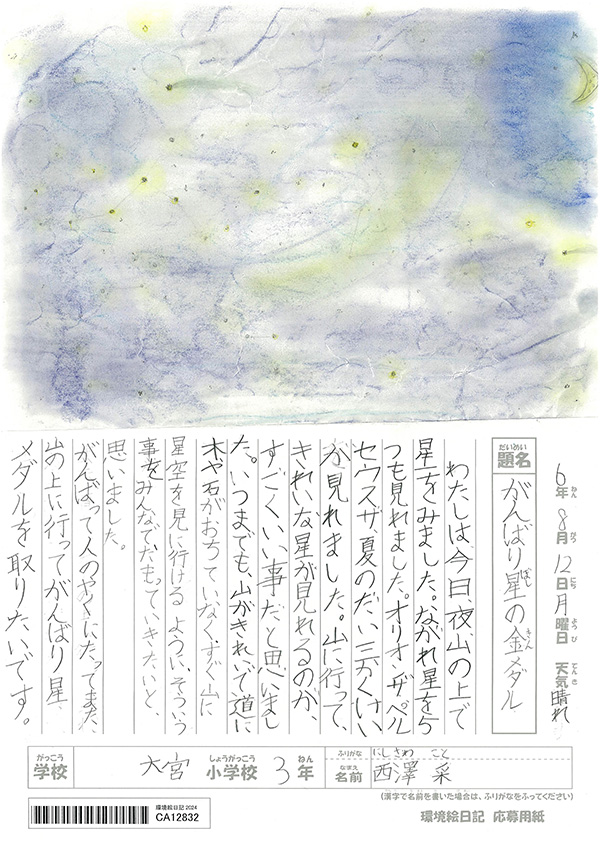 6年8月12日月曜日 天気晴れ
ねん がつ にち ようび てんき
だいめい
題名
がんばり星の金メダル
ぼし きん
わたしは、今日、夜、山の上で
星をみました。ながれ星を5
つも見れました。オリオンザ、ペル
セウスザ、夏のだい三角けい
が見れました。山に行って、
きれいな星が見れるのが、
すごくいい事だと思いまし
た。いつまでも、山がきれいで道に
木や石がおちていなく、すぐ山に
星空を見に行けるように、そういう
事をみんなでたもっていきたいと、
思いました。
がんばって人のやくにたってまた、
山の上に行ってがんばり星、
メダルを取りたいです。
がっこう
学校
大宮小学校3年
しょうがっこう ねん
ふりがな
にしざわ こと
なまえ
名前
西澤 采
(漢字で名前を書いた場合は、ふりがなをふってください)
環境絵日記2024
CA12832
環境絵日記 応募用紙